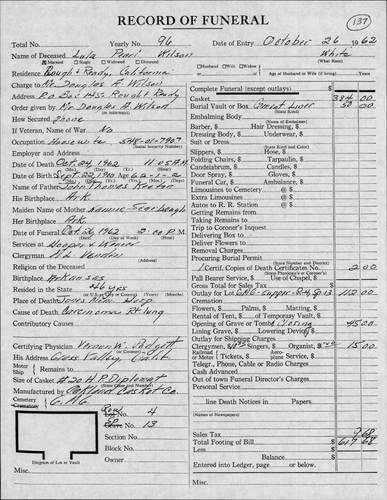 RECORD OF FUNERAL
137
Total No. Yearly No. 96 Date of Entry October 26 1962
Name of Deceased Lula Pari Wilson White
Married Single Widowed Divorced (What Race)
Residence Rough & Ready, California
Husband Widow or Age of Husband or Wife (if living)
Charge to Mr Douglas A Wilson
Address P.O. Box 145 Rough & Ready
Order given by Mr Douglas A Wilson
How Secured phone
If Veteran, of What War No
Occupation Housewife 548-01-7907
(Social Security Number)
Employer and Address
Date of Death Oct 24, 1962 11:05 A.M.
Date of Birth Sept 22, 1900 Age 62-1-2
Name of Father John Thomas
His Birthplace Ark
Maiden Name of Mother
Her Birthplace Ark
Date of Funeral Oct 26, 1962 2:00 P.M.
Services at Hooper & Weaver
Clergyman
Religion of the Deceased
Birthplace Arkansas
Resided in the State 46 yrs
Place of Death
Cause of Death Carcinoma Rt lung
Contributory Causes
Certifying Physician Vernon W. Padgett
His Address Grass Valley, Calif
Motor Ship Remains to
Size of Casket #20 H.P. Diplomat
Manufactured by Oakland Casket Co.
Cemetery
Crematory
Lot 4
13
Section No.
Block No.
Owner
Diagram of Lot or Vault
Misc.
Complete Funeral (except outlays) $
Casket 384 00
Burial Vault or Box 50 00
(State Kind and Color)
Embalming Body
Barber, $ Hair Dressing, $
Dressing Body, $ Underwear, $
Suit or Dress
(State Kind and Color)
Slippers, $ Hose, $
Folding Chairs, $ Tarpaulin, $
Candelabrum, $ Candles, $
Door Spray, $ Gloves, $
Funeral Car, $ Ambulance, $
Limousines to Cemetery @ $
Extra Limousines @ $
Autos to R. R. Station @ $
Getting Remains from
Taking Remains to
Trip to Coroner's Inquest
Delivering Box to
Deliver Flowers to
Removal Charges
Procuring Burial Permit
(State Number and District)
1 Certif. Copies of Death Certificates No. 2 00
(State Physician's or Coroner's)
Pall Bearer Service, $ Use of Chapel, $
Gross Total for Sales Tax $
Outlay for Lot 112 00
Cremation
Flowers, $ Palms, $ Matting, $
Rental of Tent, $ of Temporary Vault, $
Opening of Grave or Tomb 45 00
Lining Grave, $ Lowering Device, $
Outlay for Shipping Charges
Clergymen, $ Singers, $ Organist, $ 15 00
Railroad or Motor Tickets, $ Aeroplane Service, $
Telegr., Phone, Cable or Radio Charges
Cash Advanced
Out of town Funeral Director's Charges
Personal Service
line Death Notices in Papers
(Names of Newspapers)
Sales Tax 9 68
Total Footing of Bill $ 617 68
Less
Balance $
Entered into Ledger, page or below.
Misc.